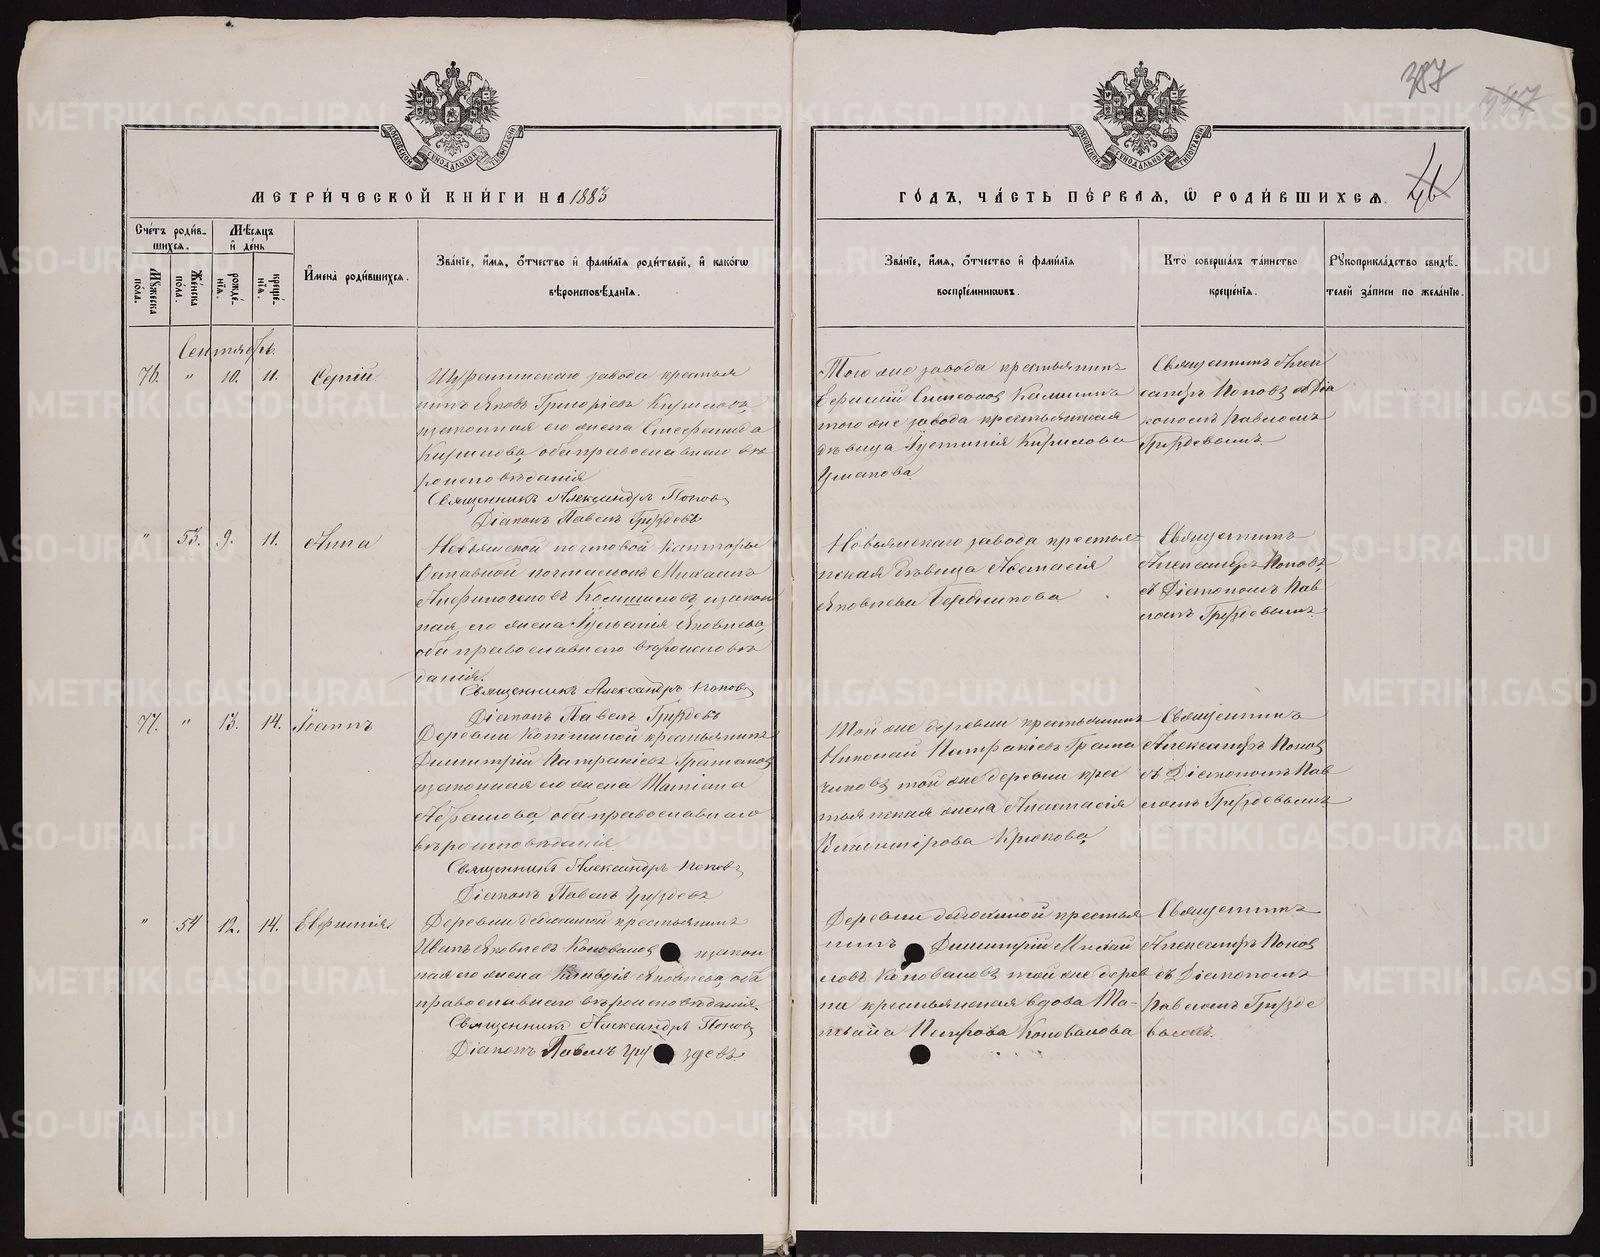 387
МЕТРИ́ЧЕСКОЙ КНИ́ГИ НА 1883
ГО́ДЪ, ЧА́СТЬ ПЕ́РВАЯ, Ѡ РОДИ́ВШИХСЯ.
46
Сче́тъ роди́в-
шихся.
Мѣ́сяцъ
и̂ де́нь
Му́жеска по́ла.
Же́нска по́ла.
рожде́-нїя.
креще́-нїя.
И̂мена̀ роди́вшихся.
Зва́нїе, и̂мя, о̂тчество и̂ фами́лїя роди́телей, и̂ како́гѡ
вѣроисповѣ́данїя.
Зва́нїе, и̂мя, о̂тчество и̂ фами́лїя
воспрїе́мниковъ.
Кто̀ соверша́лъ та́инство
креще́нїя.
Рꙋкоприкла́дство свидѣ́-
телей за́писи по жела́нїю.
Сентябрь.
76. " 10. 11. Сергій
Шуралинскаго завода крестья
нинъ Яковъ Григоріевъ Кириловъ,
изаконная его жена Стефанида
Кирилова, оба православнаго вѣ
роисповѣданія
Священникъ Александръ Поповъ
Діаконъ Павелъ Груздевъ
Того же завода крестьянинъ
того же завода крестьянская
дѣвица Іустинія Кирилова
Ушакова.
Священникъ Алек
сандръ Поповъ съ Діа
кономъ Павломъ
Груздевымъ
" 53. 9. 11. Анна
Невьянской почтовой Канторы
Отставной почтальонъ Михаилъ
изакон
ная его жена Іуліанія Яковлева,
оба православнаго вѣроисповѣ
данія.
Священникъ Александръ Поповъ
Діаконъ Павелъ Груздевъ
Невьянскаго завода крестья-
нская дѣвица Анастасія
Яковлева Бердникова
Священникъ
Александръ Поповъ
съ Діакономъ Пав
ломъ Груздевымъ.
77. " 13. 14. Іоаннъ
Деревни крестьянинъ
Димитрій Патракіевъ
изаконная его жена Татіана
оба православнаго
вѣроисповѣданія
Священникъ Александръ Поповъ
Діаконъ Павелъ Груздевъ
Той же деревни крестьянинъ
Николай Патракіевъ Грама
чиковъ, той же деревни крес
тьянская жена Анастасія
Владимірова Крюкова,
Священникъ
Александръ Поповъ
съ Діакономъ Пав
ломъ Груздевымъ
" 54 12. 14. Евфимія
Деревни крестьянинъ
Иванъ Яковлевъ Коноваловъ изакон
ная его жена Клавдія Яковлева, оба
православнаго вѣроисповѣданія.
Священникъ Александръ Поповъ
Діаконъ Павелъ Груздевъ
Деревни крестья
нинъ Димитрій Михай
ловъ Коноваловъ той же дерев
ни крестьянская вдова Та-
тьяна Петрова Коновалова
Священникъ
Александръ Поповъ
съ Діакономъ
Павломъ Грузде
вымъ.
METRIKI.GASO-URAL.RU